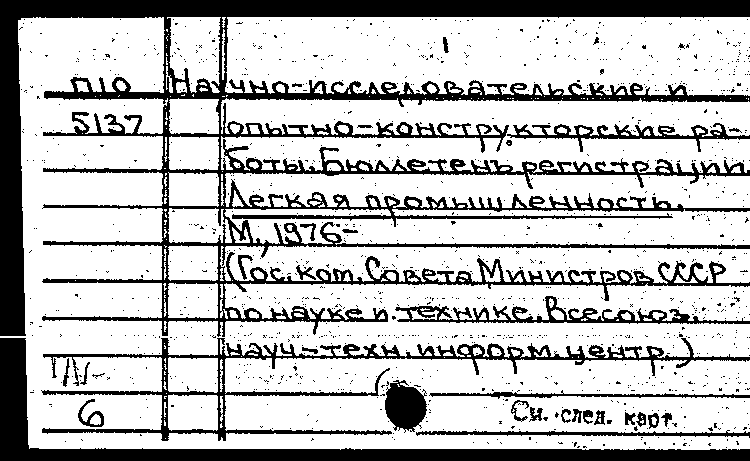 1
П10 Научно-исследовательские и
5137 опытно-конструкторские ра-
боты. Бюллетень регистрации.
Легкая промышленность.
М., 1976-
(Гос. ком. Совета Министров СССР
по науке и технике. Всесоюз.
науч.-техн. информ. центр.)
6
См. след. карт.